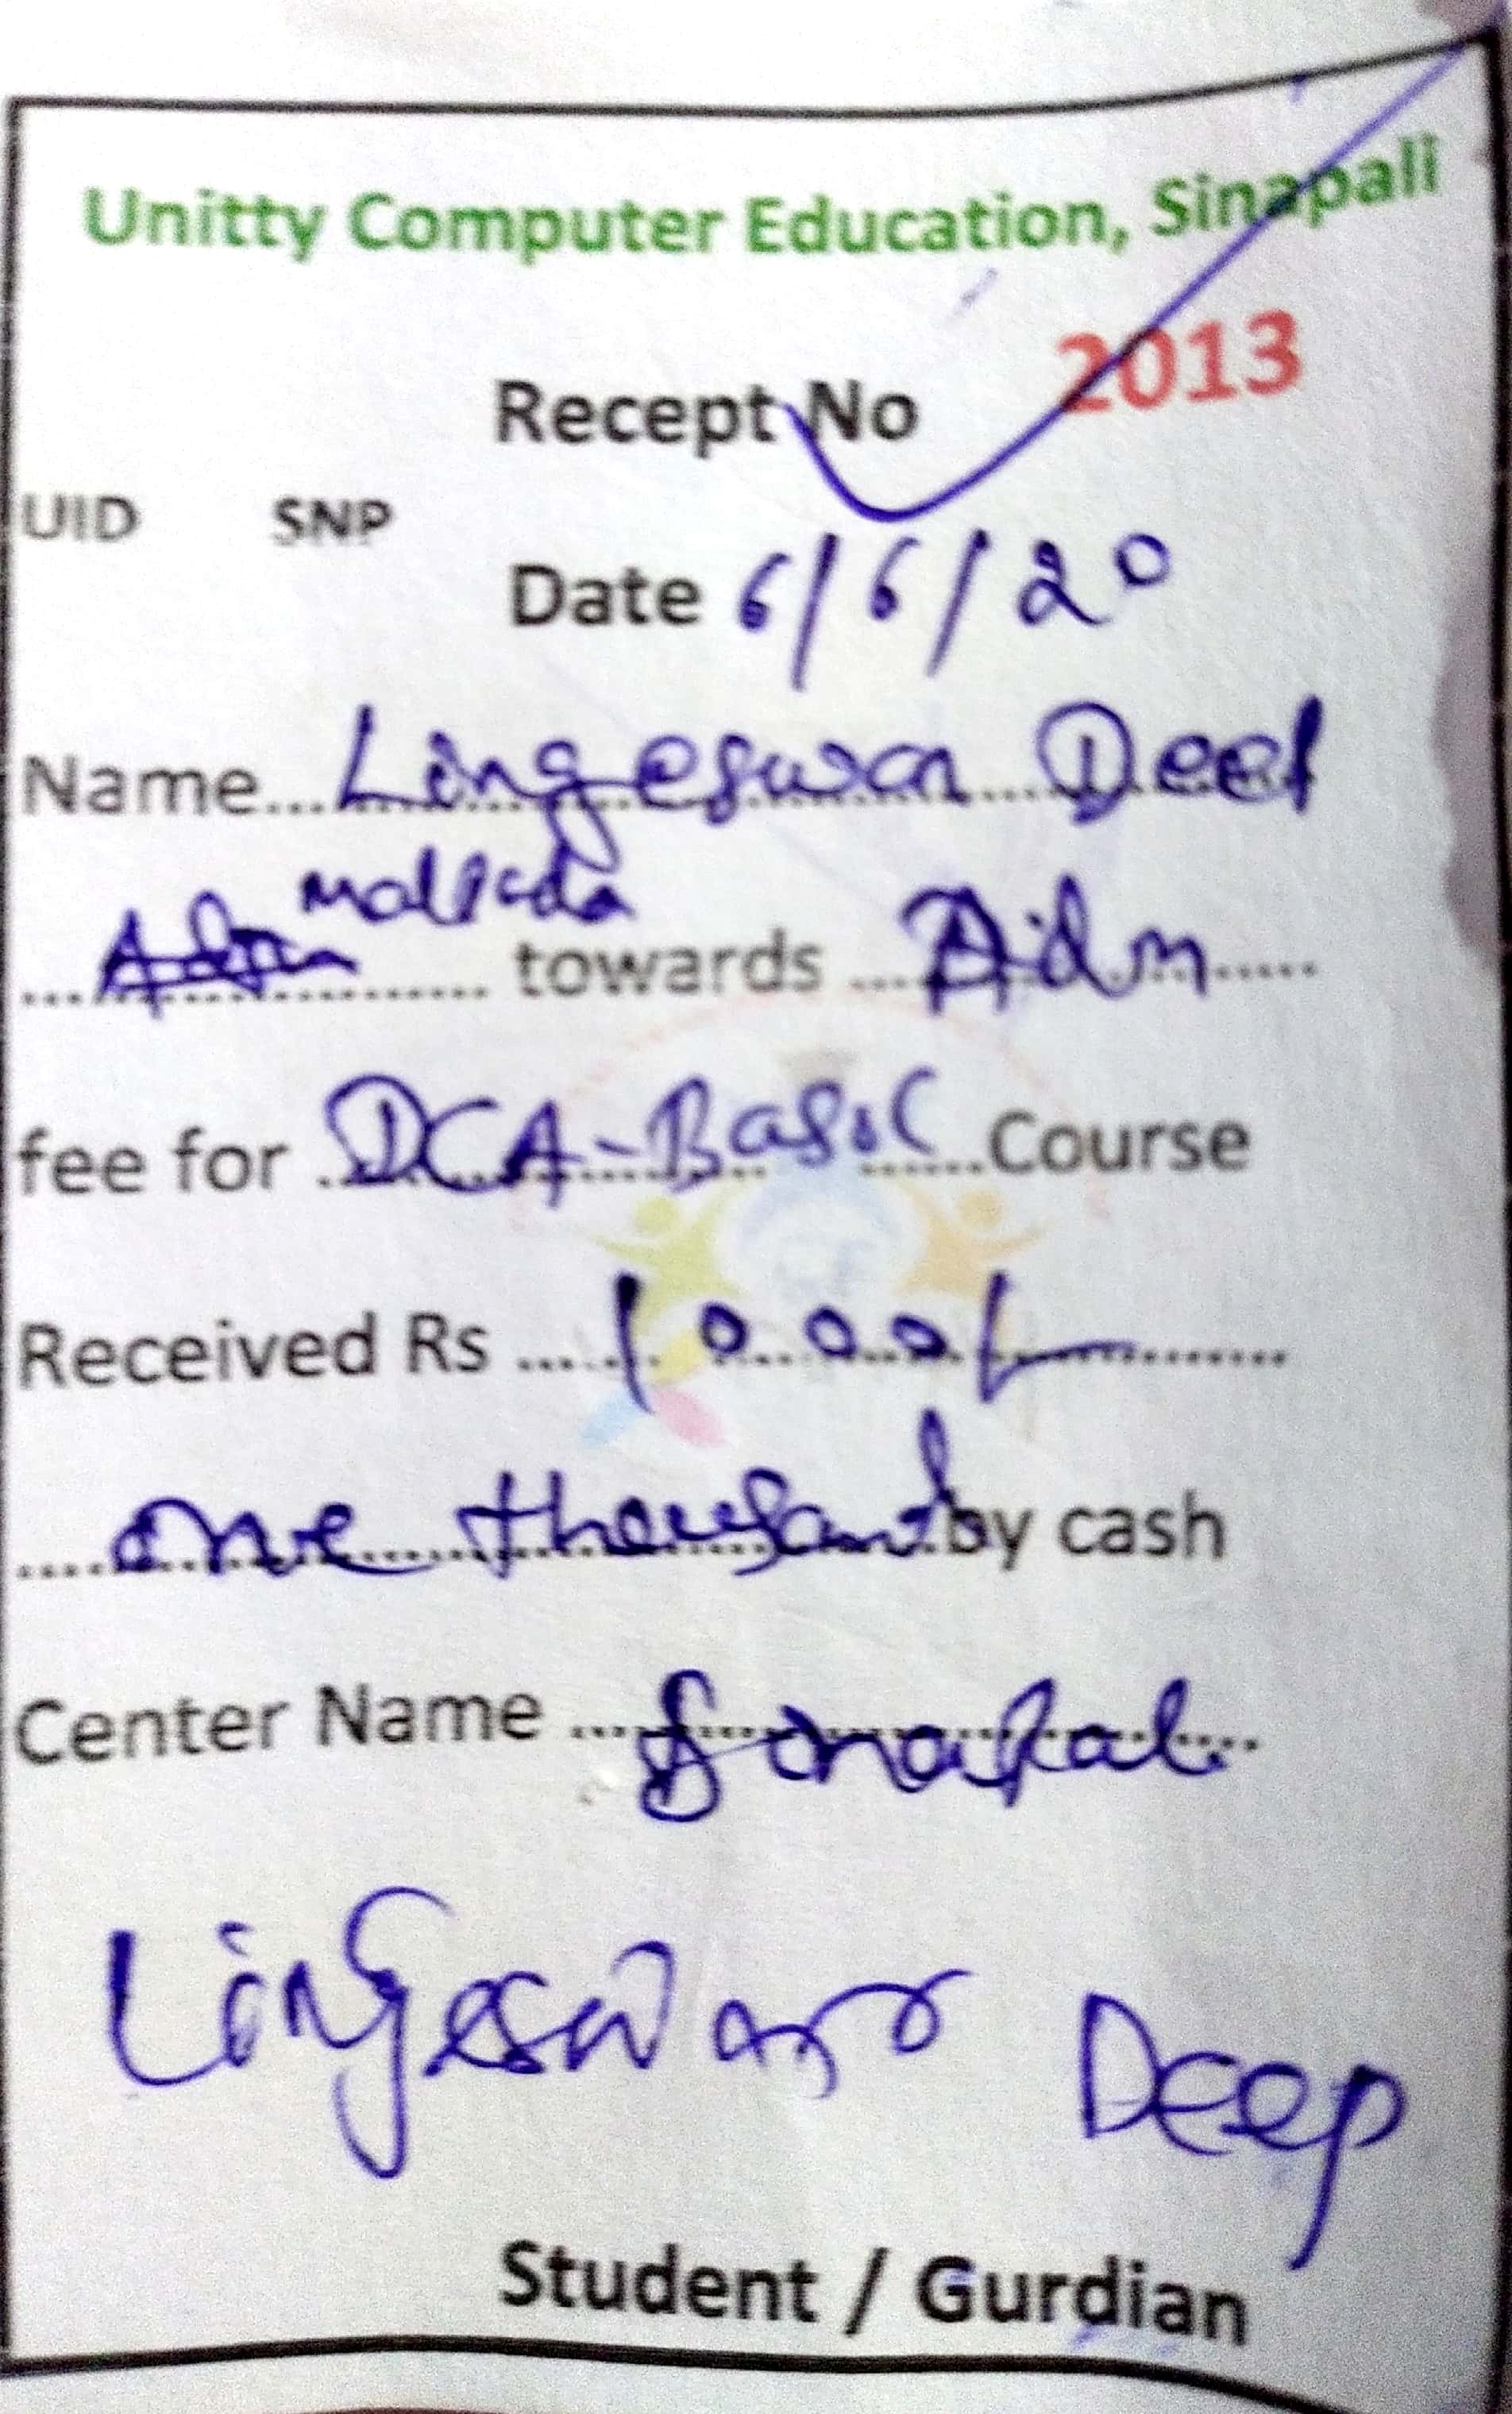 Unitty Computer Education, Sinapali
Recept No 2013
UID SNP
Date 6/6/20
Name... Lingeswar Deep
towards Adm
fee for DCA-Basic Course
Received Rs 1000/-
one thousand by cash
Center Name Sinapali
Lingeswar Deep
Student / Gurdian